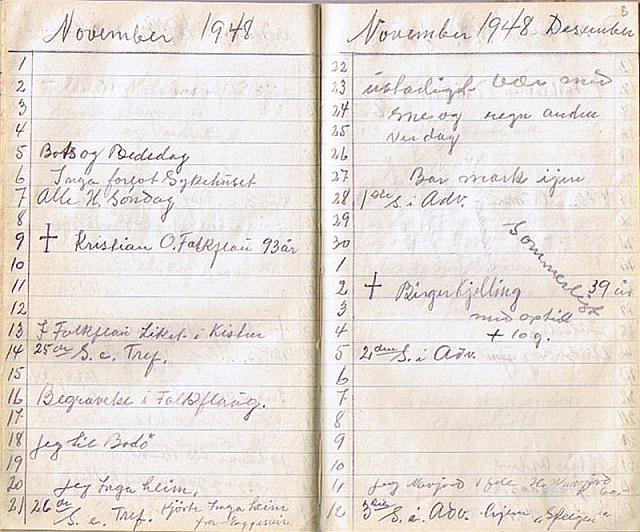 November 1948
1
2
3
4
5 Bots og Bededag
6 Inga forlot Sykehuset
7 Alle H. Søndag
8
9 † Kristian O. Falkflaug 93 år
10
11
12
13 I Falkflaug Liket i Kisten
14 25de S. e. Tref.
15
16 Begravelse i Falkflaug.
17
18 jeg til Bodö
19
20 jeg Inga heim,
21 26de S. e. Tref. Hjörte Inga heim
fra
November 1948 Desember
22
23 ustadigt vær med
24 sne og regn andre
25 verdag
26
27 Bar mark ijen
28 1ste S. i Adv.
29
30 Sommerligt
1
2 † Birger Kjelling 39 år
3 med optil
4 + 10 g.
5 2den S. i Adv.
6
7
8
9
10
11 jeg
12 3die S. i Adv.